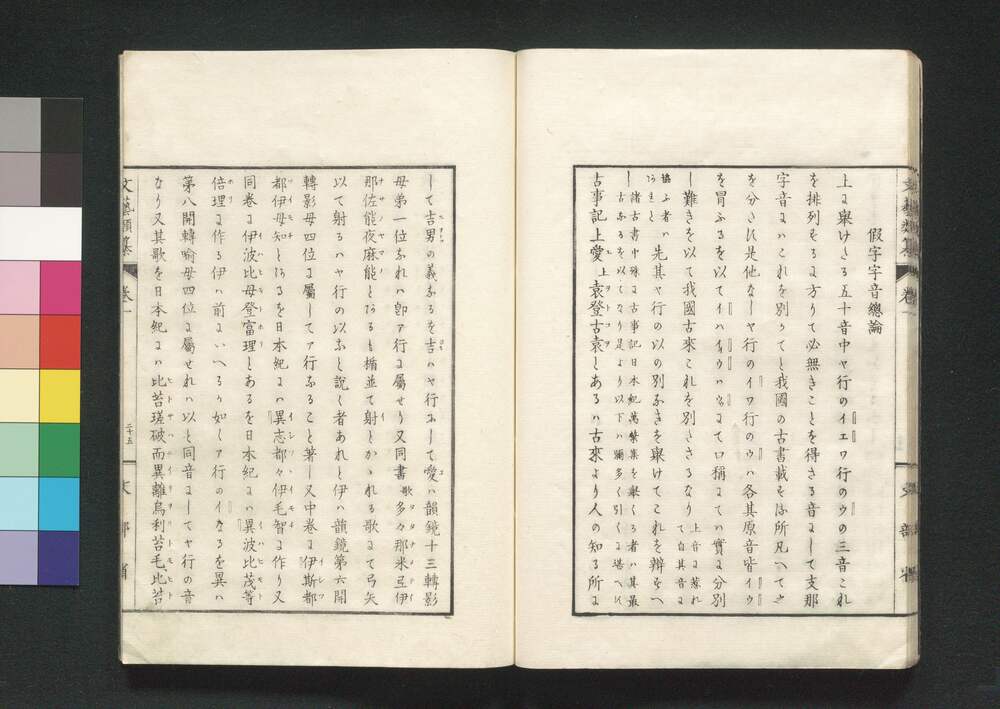 假字字音總論
上ニ舉ケタル五十音中ヤ行のイエワ行のウの三音これ
を排列するに方りて必無きことを得さる音にして支那
字音にハこれを別ツて我國の古書載する所凡へてこ
を分さるハ是他なしヤ行のイワ行のウハ各其原音皆イウ
を冒ふるを以てイハイイウハウウにて口稱にてハ實に分別
し難きを以て我國古來これを別さるなり
協ふ者ハ
先其ヤ行の以の別なきを舉けてこれを辨すへ
諸古書中殊に古事記日本紀萬葉集を舉くる者ハ其最
古なるを以てなり是より以下ハ
古事記上愛上袁登古袁とあるハ古來より人の知る所に
して吉男の義なるを吉ハヤ行にして愛ハ韻鏡十三轉影
母第一位なれハ卽ア行に屬せり又同書歌多々那米弖伊
那佐能夜麻能とあるも楯並て射とかゝれる歌にて弓矢
以て射るハヤ行の以なと說く者あれと伊ハ韻鏡第六開
轉影母四位に屬してア行なること著し又中卷に伊斯都
都伊母知とあるを日本紀にハ異志都々伊毛智に作り又
同卷に伊波比母登富理とあるを日本紀にハ異波比茂等
倍理に作る伊ハ前にいへるか如くア行のイなるを異ハ
第八開轉喻母四位に屬せれハ以と同音にしてヤ行の音
なり又其歌を日本紀にハ比苔瑳破而異離烏利苔毛比苔
文藝類纂
卷一
二十五
文部省